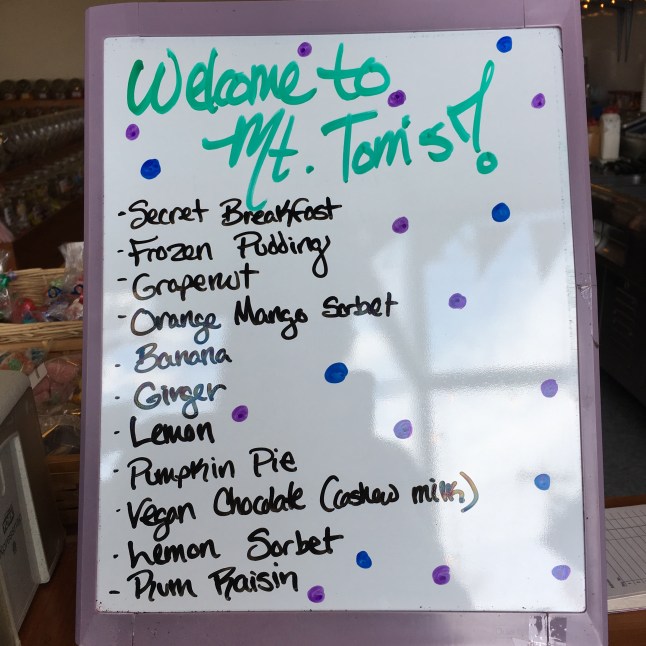 Welcome to
Mt. Tom's!
- Secret Breakfast
- Frozen Pudding
- Grapenut
- Orange Mango Sorbet
- Banana
- Ginger
- Lemon
- Pumpkin Pie
- Vegan Chocolate (cashew milk)
- Lemon Sorbet
- Rum Raisin